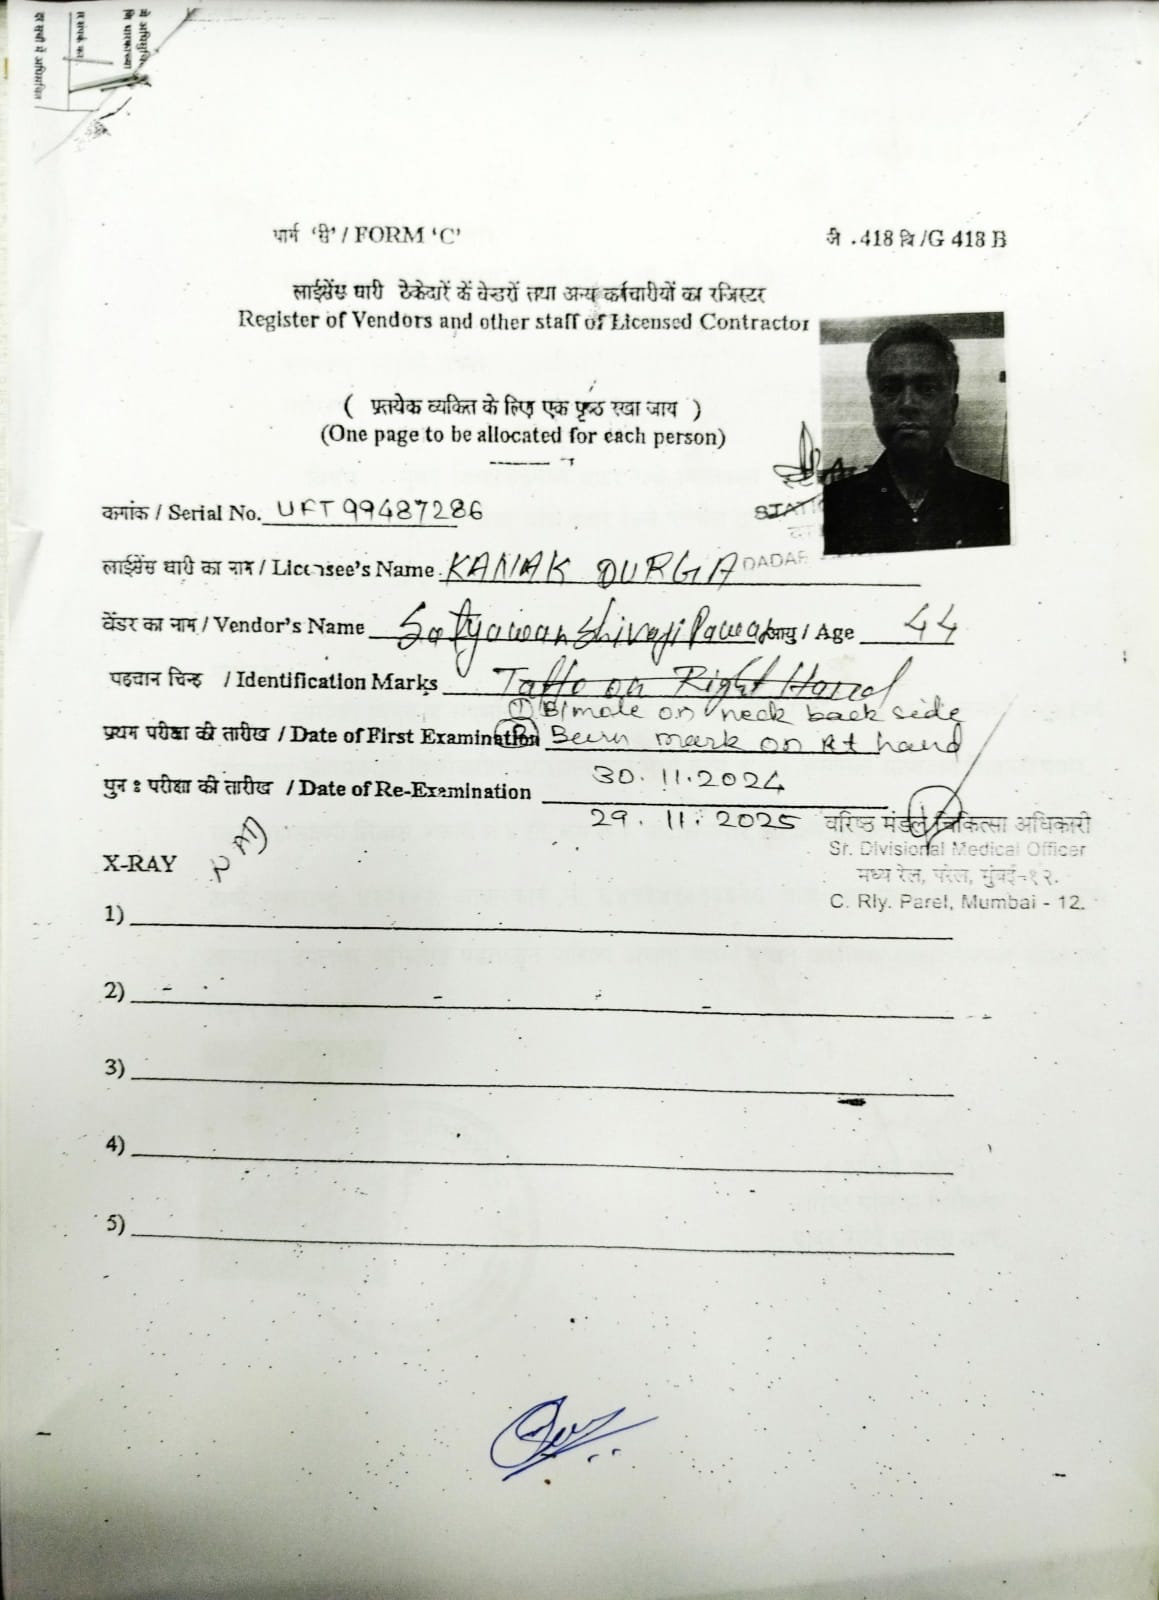 फार्म 'सी' / FORM 'C'
जी .418 बि /G 418 B
लाईसेंस धारी ठेकेदारें कें वेन्डरों तथा अन्य कर्मचारीयों का रजिस्टर
Register of Vendors and other staff of Licensed Contractor
( प्रत्येक व्यकित के लिए एक पृष्ठ रखा जाय )
(One page to be allocated for each person)
कमांक / Serial No. UFT 99487286
लाईसेंस धारी का नाम / Licensee's Name KANAK DURGA
DADAR
वेंडर का नाम / Vendor's Name Satyawan Shivaji Pawar आयु / Age 44
पहचान चिन्ह / Identification Marks Tatto on Right Hand
① B/mole on neck back side
प्रथम परीक्षा की तारीख / Date of First Examination ② Beurn mark on Rt hand
पुन : परीक्षा की तारीख / Date of Re-Examination 30.11.2024
29.11.2025
वरिष्ठ मंडल चिकित्सा अधिकारी
Sr. Divisional Medical Officer
मध्य रेल, परेल, मुंबई-१२.
C. Rly. Parel, Mumbai - 12.
X-RAY
1)
2)
3)
4)
5)